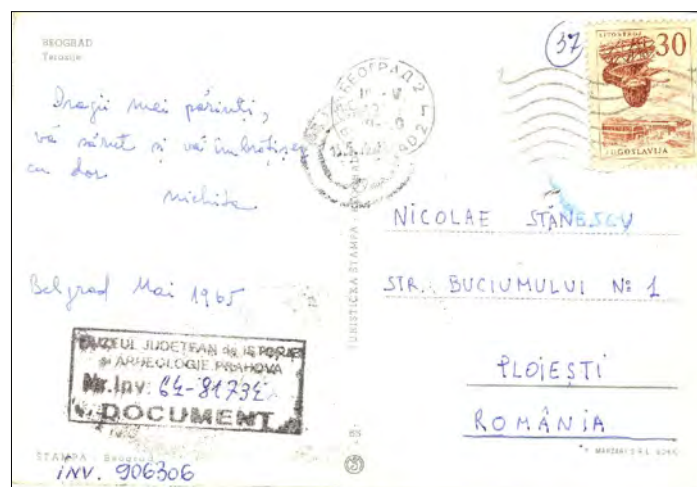 BEOGRAD
Terazije
Dragii mei părinți,
vă sărut și vă îmbrățișez
cu dor
Nichita
Belgrad Mai 1965
MUZEUL JUDEȚEAN de ISTORIE
și ARHEOLOGIE PRAHOVA
Nr. Inv.
DOCUMENT
ŠTAMPA - Beograd
INV. 906306
TURISTIČKA ŠTAMPA - BEOGRAD
37
БЕОГРАД 2
30
JUGOSLAVIJA
NICOLAE STĂNESCU
STR. BUCIUMULUI Nº 1
PLOIEȘTI
ROMÂNIA